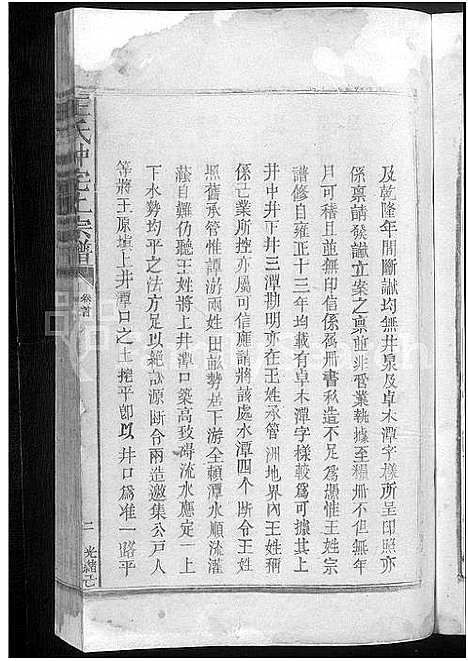 及乾隆年間斷讞均無井泉及卓木潭字樣所呈印照亦
係稟請發讞立案之稟並非管業執據至糧冊不但無年
月可稽且並無印信係屬冊書私造不足為憑惟王姓宗
譜修自雍正十三年均載有卓木潭字樣較為可據其上
井中井下井三潭勘明亦在王姓承管洲地界內王姓稱
係己業所控亦屬可信應請將該處水潭四個斷令王姓
照舊承管惟譚游兩姓田畝勢居下游全賴潭水順流灌
蔭自難仍聽王姓將上井潭口築高致碍流水應定一上
下水勢均平之法方足以絕訟源斷令兩造邀集公戶人
等將王原填上井潭口之土挖平即以井口為准一路平
王氏沖宅上宗譜
卷首
二
光緒己